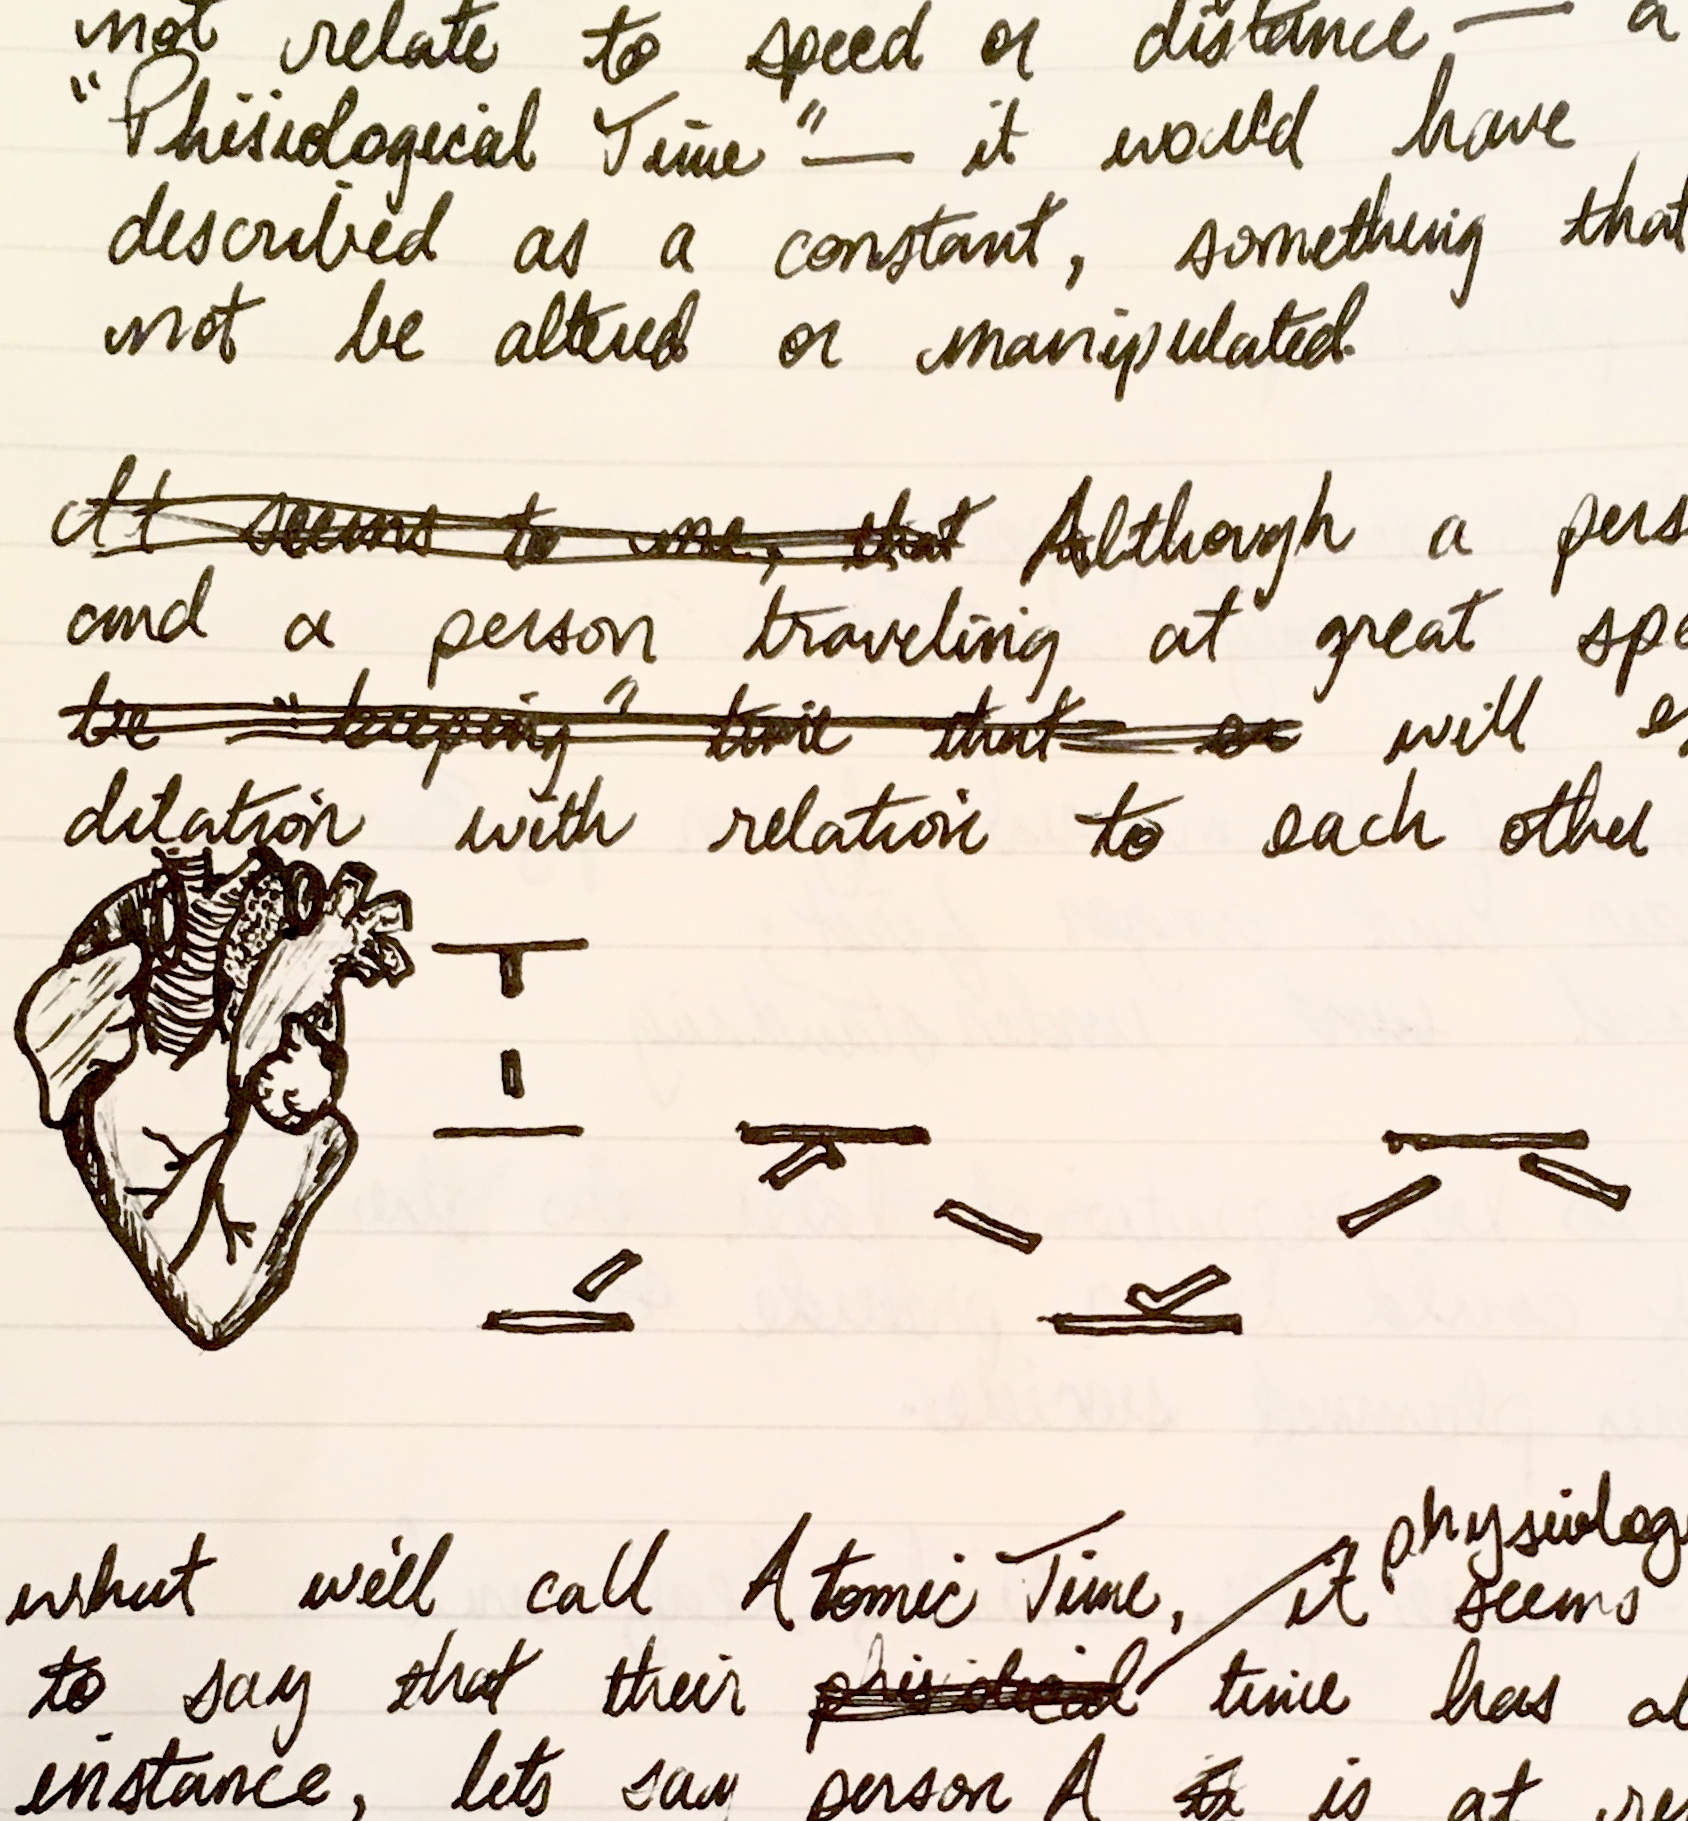 not relate to speed or distance — a
"Phisiological Time" — it would have
described as a constant, something that
not be altered or manipulated.
It seems to me, that Although a pers
and a person traveling at great spe
be "keeping" time that will e
dilation with relation to each other
physiolog
what we'll call Atomic Time, it seems
to say that their time has al
instance, lets say person A is at re